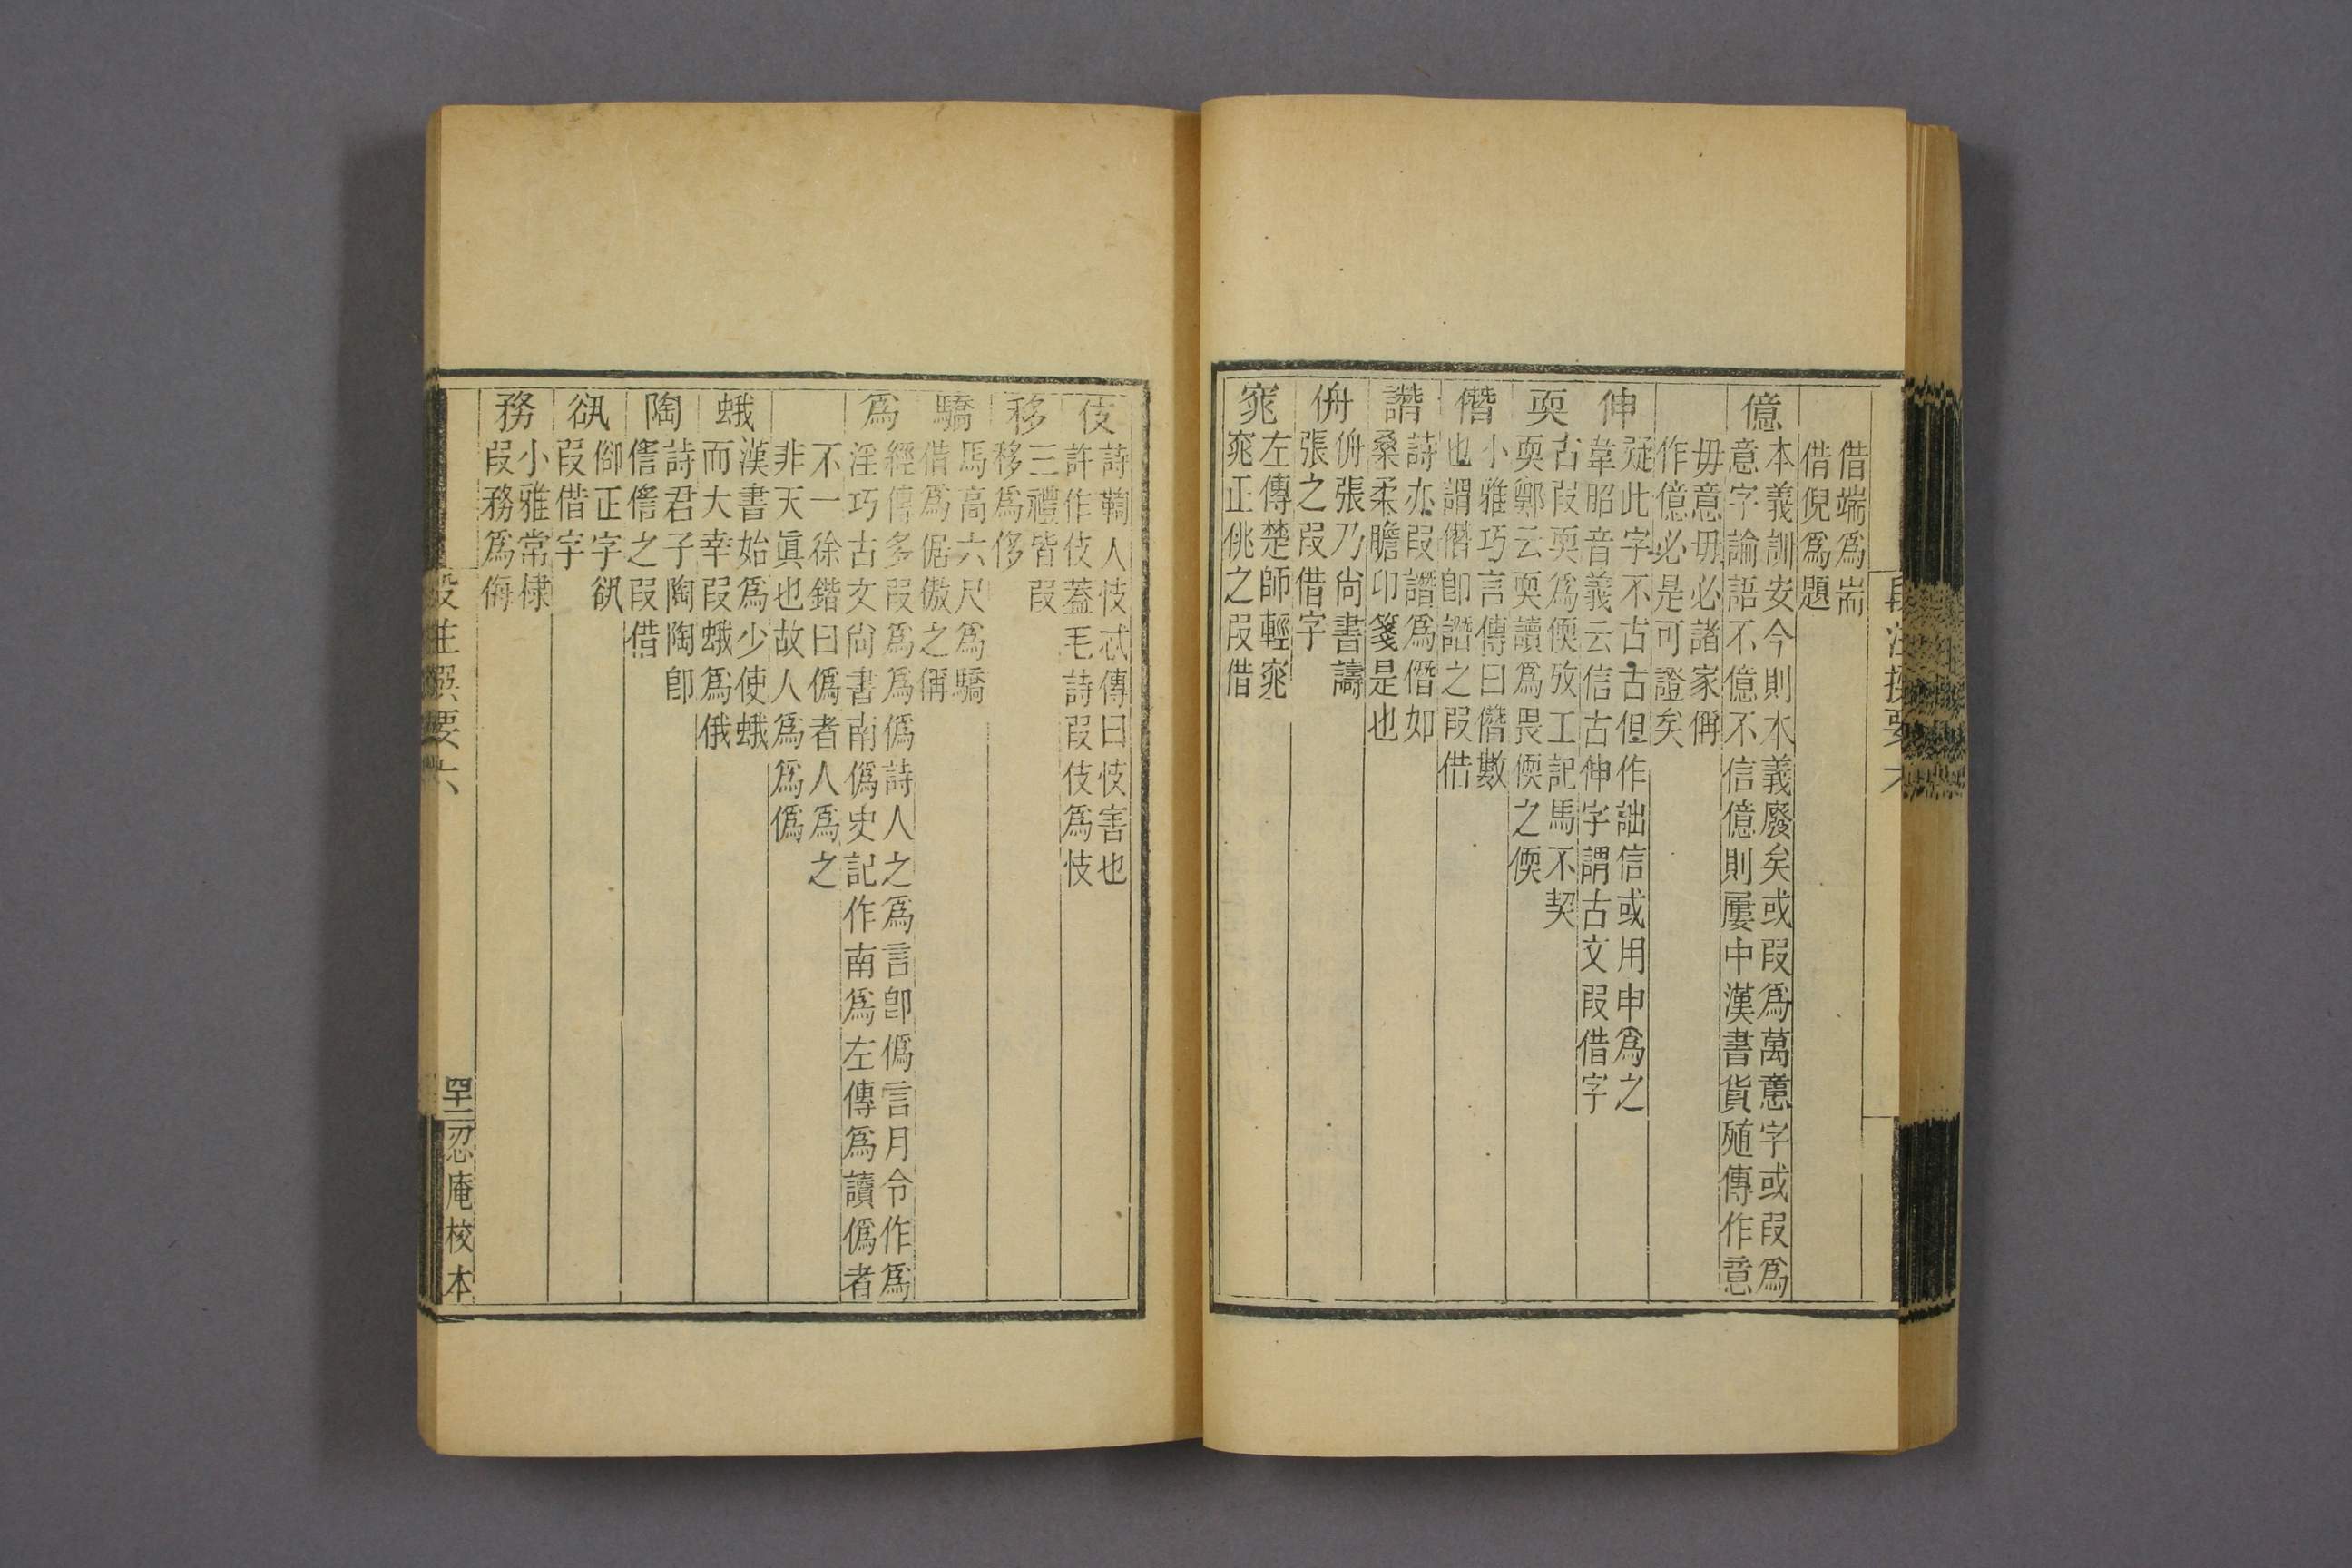 段注撰要六
借端爲耑
借倪爲題
億
本義訓安今則本義廢矣或叚爲萬意字或叚爲
意字論語不億不信億則屢中漢書貨殖傳作意
毋意毋必諸家偁
作億必是可證矣
伸
疑此字不古古但作詘信或用申爲之
韋昭音義云信古伸字謂古文叚借字
耎
古叚耎爲偄攷工記馬不契
耎鄭云耎讀爲畏偄之偄
僭
小雅巧言傳曰僭數
也謂僭卽譖之叚借
譖
詩亦叚譖爲僭如
桑柔瞻卬箋是也
侜
侜張乃尚書譸
張之叚借字
窕
左傳楚師輕窕
窕正佻之叚借
伎
詩鞫人忮忒傳曰忮害也
許作伎蓋毛詩叚伎爲忮
移
三禮皆叚
移爲侈
驕
馬高六尺爲驕
借爲倨傲之偁
爲
經傳多叚爲爲僞詩人之爲言卽僞言月令作爲
淫巧古文尚書南僞史記作南爲左傳爲讀僞者
不一徐鍇曰僞者人爲之
非天眞也故人爲爲僞
蛾
漢書始爲少使蛾
而大幸叚蛾爲俄
陶
詩君子陶陶卽
傜傜之叚借
㕁
㑢正字㕁
叚借字
務
小雅常棣
叚務爲侮
段注撰要六
四十二
忍庵校本